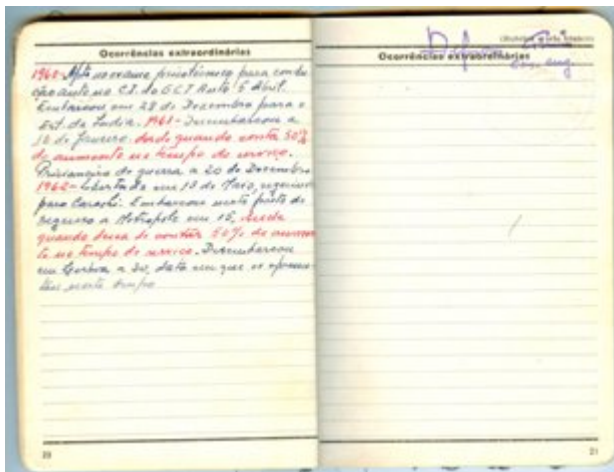 Ocorrências extraordinárias
1960- Apto no exame psicotécnico para condu
ção auto no C.I. do G.C.T. Auto
Embarcou em 28 de Dezembro para o
Est. da India. 1961- Desembarcou a
de Janeiro. desde quando conta 50%
de aumento no tempo de serviço.
Prisioneiro de guerra a 20 de Dezembro
1962- Libertado em 13 de Maio, seguindo
para Carachi. Embarcou neste porto de
regresso a Metropole em 15, desde
quando deixa de contar 50% de aumen
to no tempo de serviço. Desembarcou
em Lisboa a 30, data em que se apresen-
tou neste
20
Ocorrências extraordinárias
21